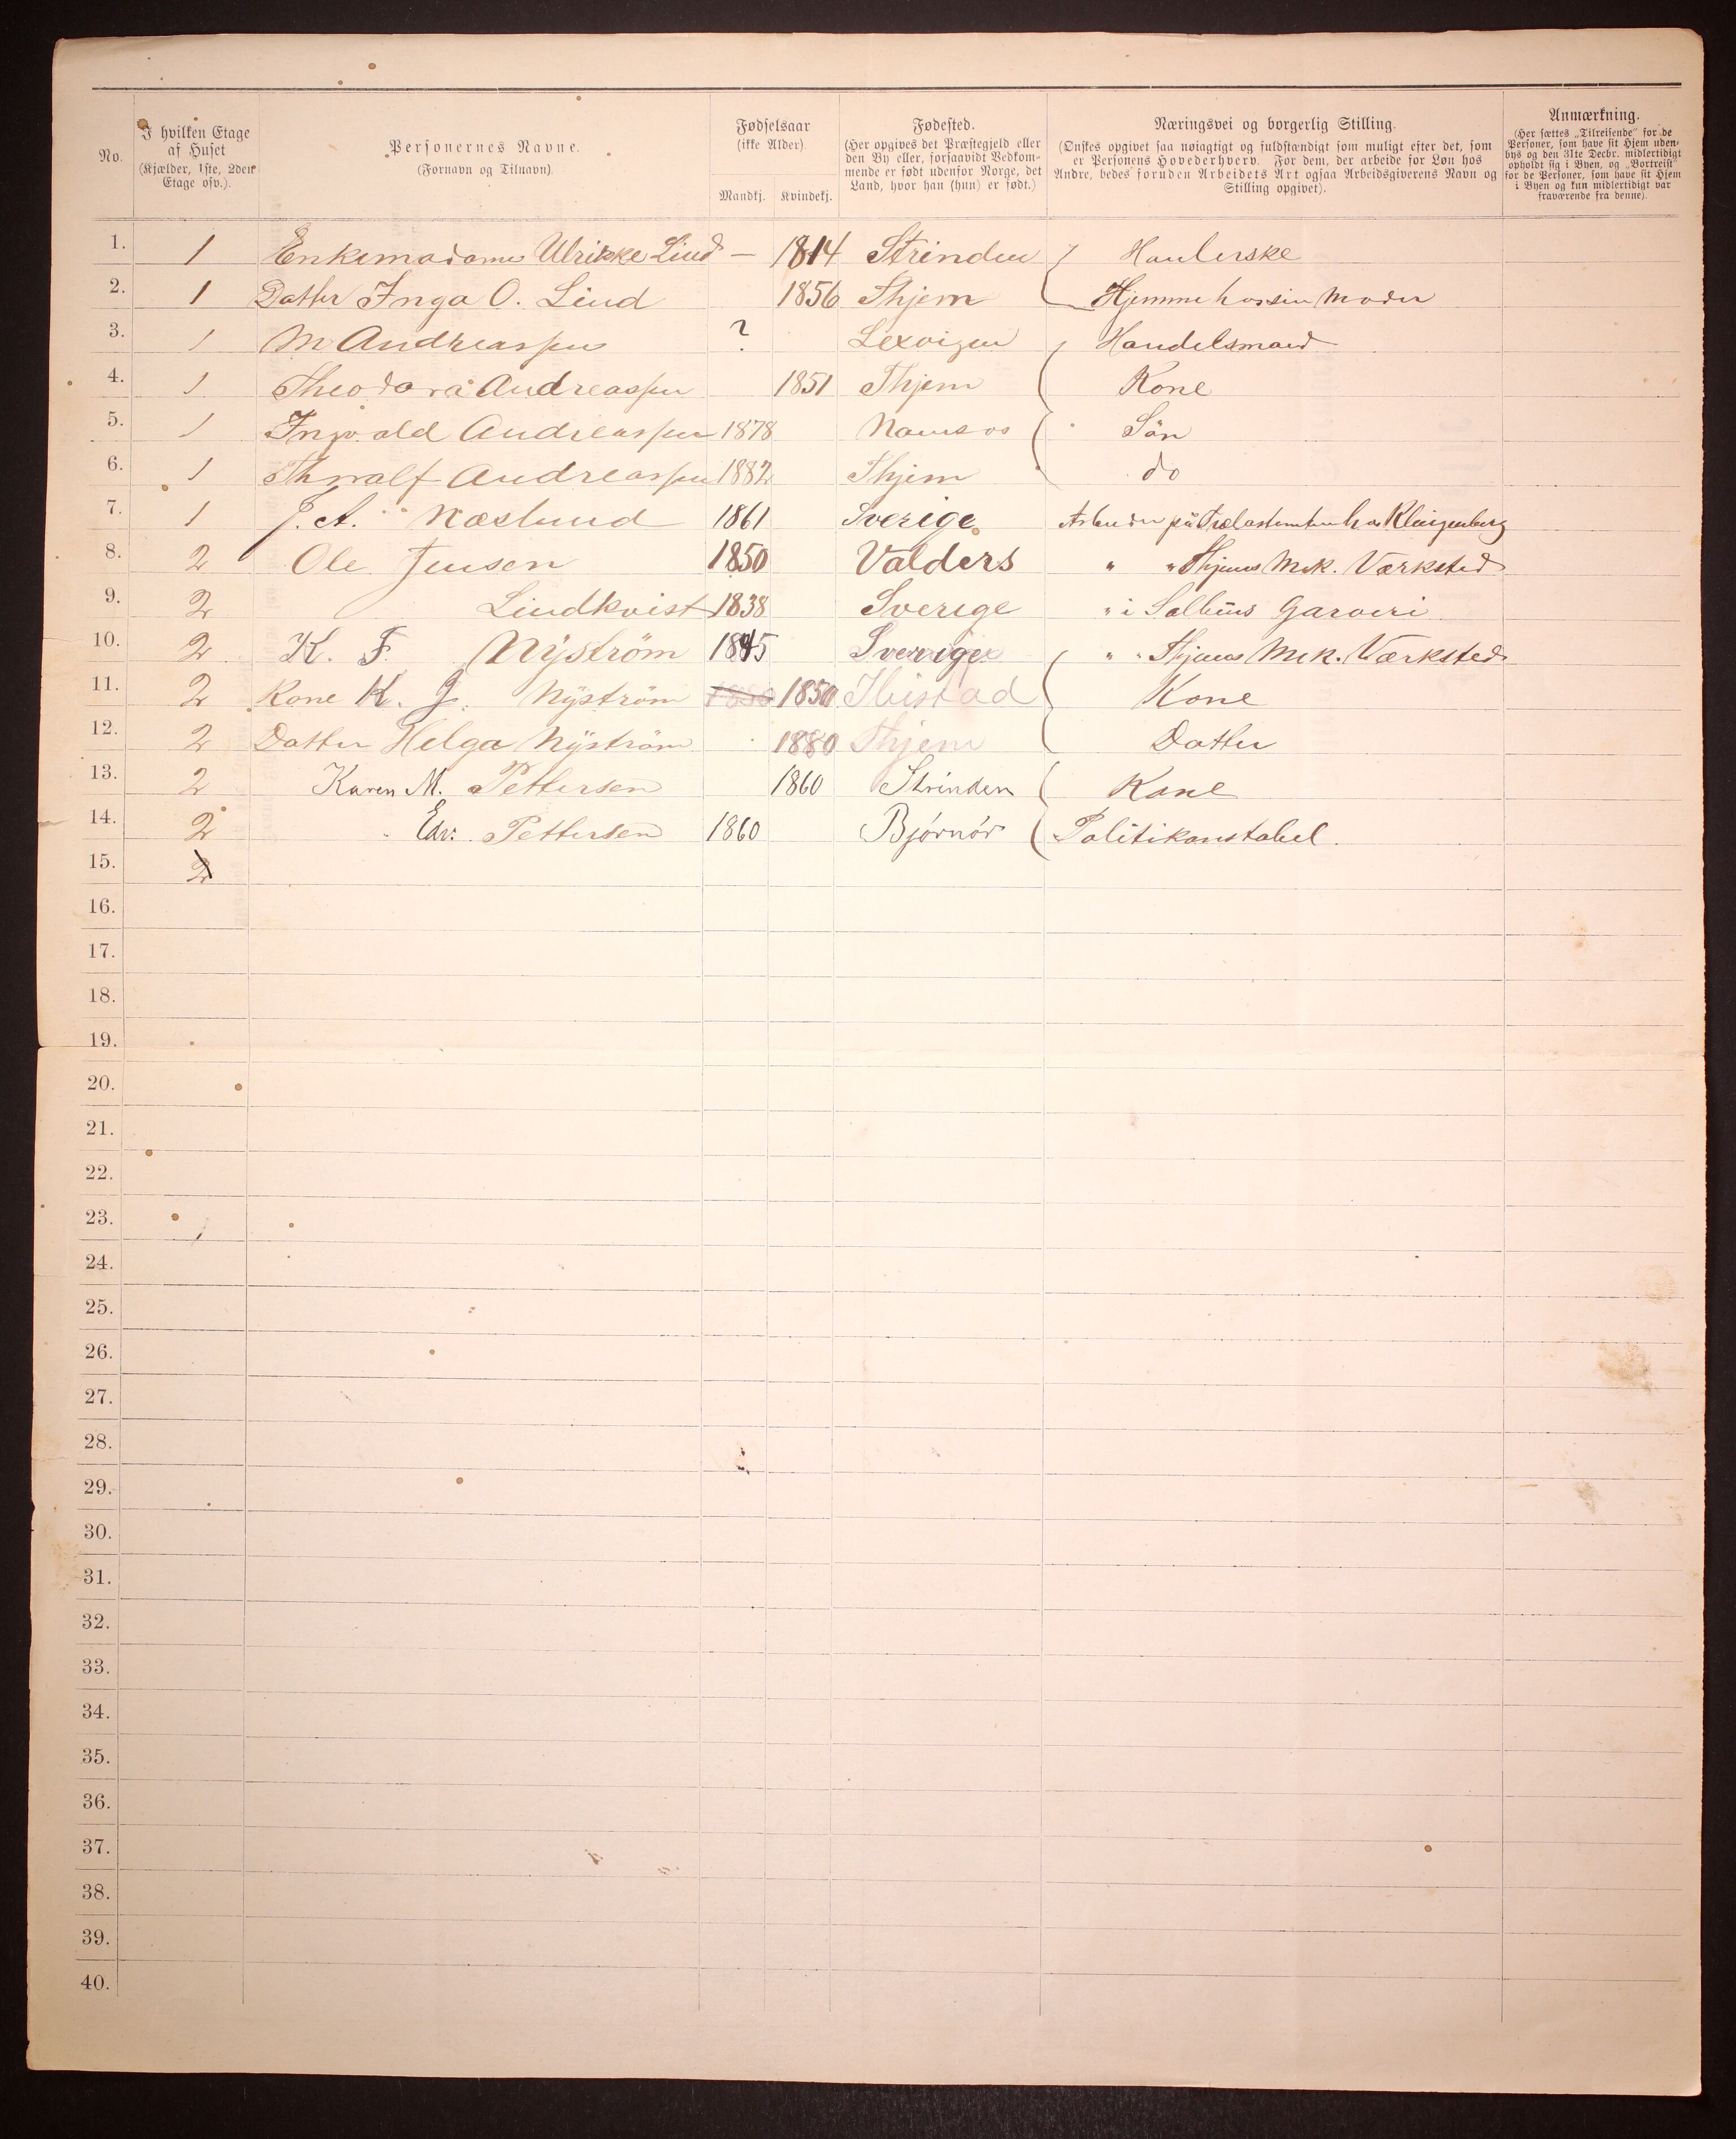 No.
I hvilken Etage
af Huset
(Kjælder, 1ste, 2den
Etage osv.).
Personernes Navne.
(Fornavn og Tilnavn).
Fødselsaar
(ikke Alder).
Mandkj. Kvindekj.
Fødested.
(Her opgives det Præstegjeld eller
den By eller, forsaavidt Vedkom-
mende er født udenfor Norge, det
Land, hvor han (hun) er født.)
Næringsvei og borgerlig Stilling.
(Ønskes opgivet saa nøiagtigt og fuldstændigt som muligt efter det, som
er Personens Hovederhverv. For dem, der arbeide for Løn hos
Andre, bedes foruden Arbeidets Art ogsaa Arbeidsgiverens Navn og
Stilling opgivet).
Anmærkning.
(Her sættes „Tilreisende" for de
Personer, som have sit Hjem uden-
bys og den 31te Decbr. midlertidigt
opholdt sig i Byen, og „Bortreist"
for de Personer, som have sit Hjem
i Byen og kun midlertidigt var
fraværende fra denne).
1. 1 Enkemadame Ulrikke Lind — 1814 Strinden Hanlerske
2. 1 Datter Inga O. Lind 1856 Thjem Hjemme hos sin Moder
3. 1 M Andreassen ? Lexvigen Handelsmand
4. 1 Theodora Andreassen 1851 Thjem Kone
5. 1 Ingvald Andreassen 1878 Namsos Sön
6. 1 Thoralf Andreassen 1882 Thjem do
7. 1 J. A. Næslund 1861 Sverige Arbeider på Trælasttomten hos Klingenberg
8. 2 Ole Jensen 1850 Valders " " Thjems Mek. Værksted
9. 2 Lindkvist 1838 Sverige " i Garveri
10. 2 K. F. Nyström 1845 Sverige " " Thjems Mek. Værksted
11. 2 Kone K. J. Nyström 1850 1850 Ibistad Kone
12. 2 Datter Helga Nyström 1880 Thjem Datter
13. 2 Karen M. Pettersen 1860 Strinden Kone
14. 2 Edv. Pettersen 1860 Bjørnør Politikonstabel.
15. 2
16.
17.
18.
19.
20.
21.
22.
23.
24.
25.
26.
27.
28.
29.
30.
31.
32.
33.
34.
35.
36.
37.
38.
39.
40.